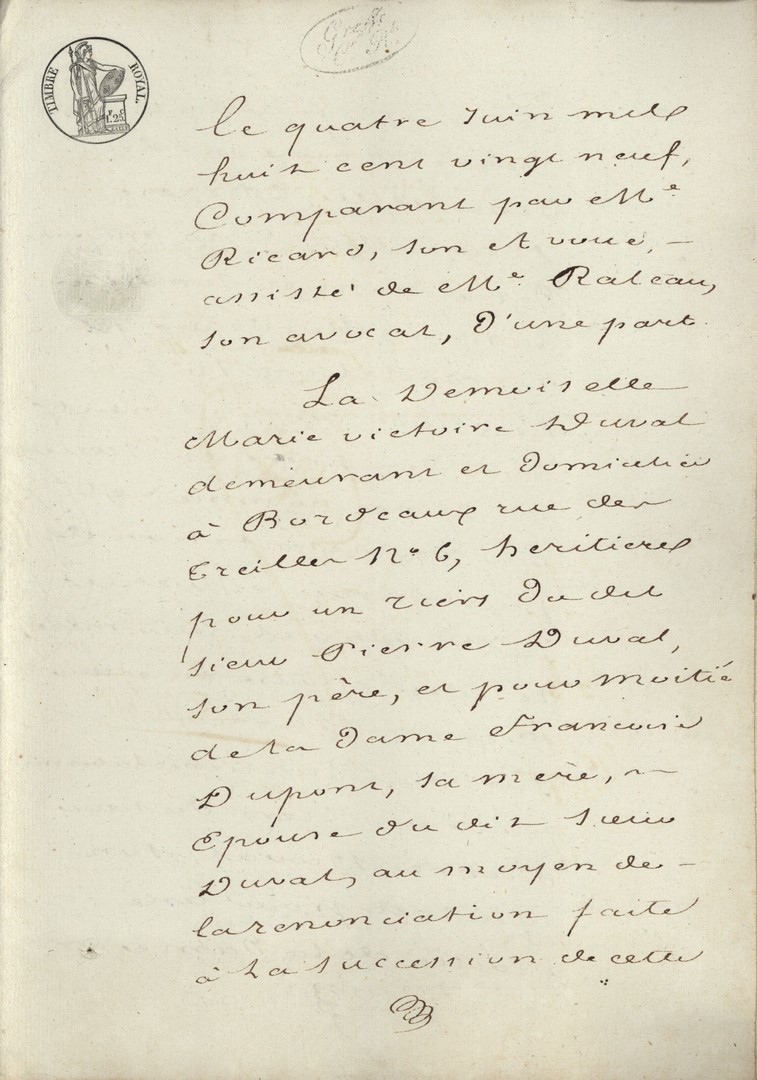 TIMBRE ROYAL.
1.F 25.C
le quatre Juin mil
huit cent vingt neuf,
Comparant par Me
Ricard, son et voué, -
assisté de Me Rateau,
son avocat, D'une part.
La Demoiselle
Marie victoire Duval
demeurant et Domiciliée
à Bordeaux rue des
Treilles No 6, heritiere
pour un tiers Du dit
sieur Pierre Duval,
son père, et pour moitié
de la Dame Francoise
Dupont, sa mère, ~
Epouse du dit Sieur
Duval, au moyen de -
la renonciation faite
à la succession de cette